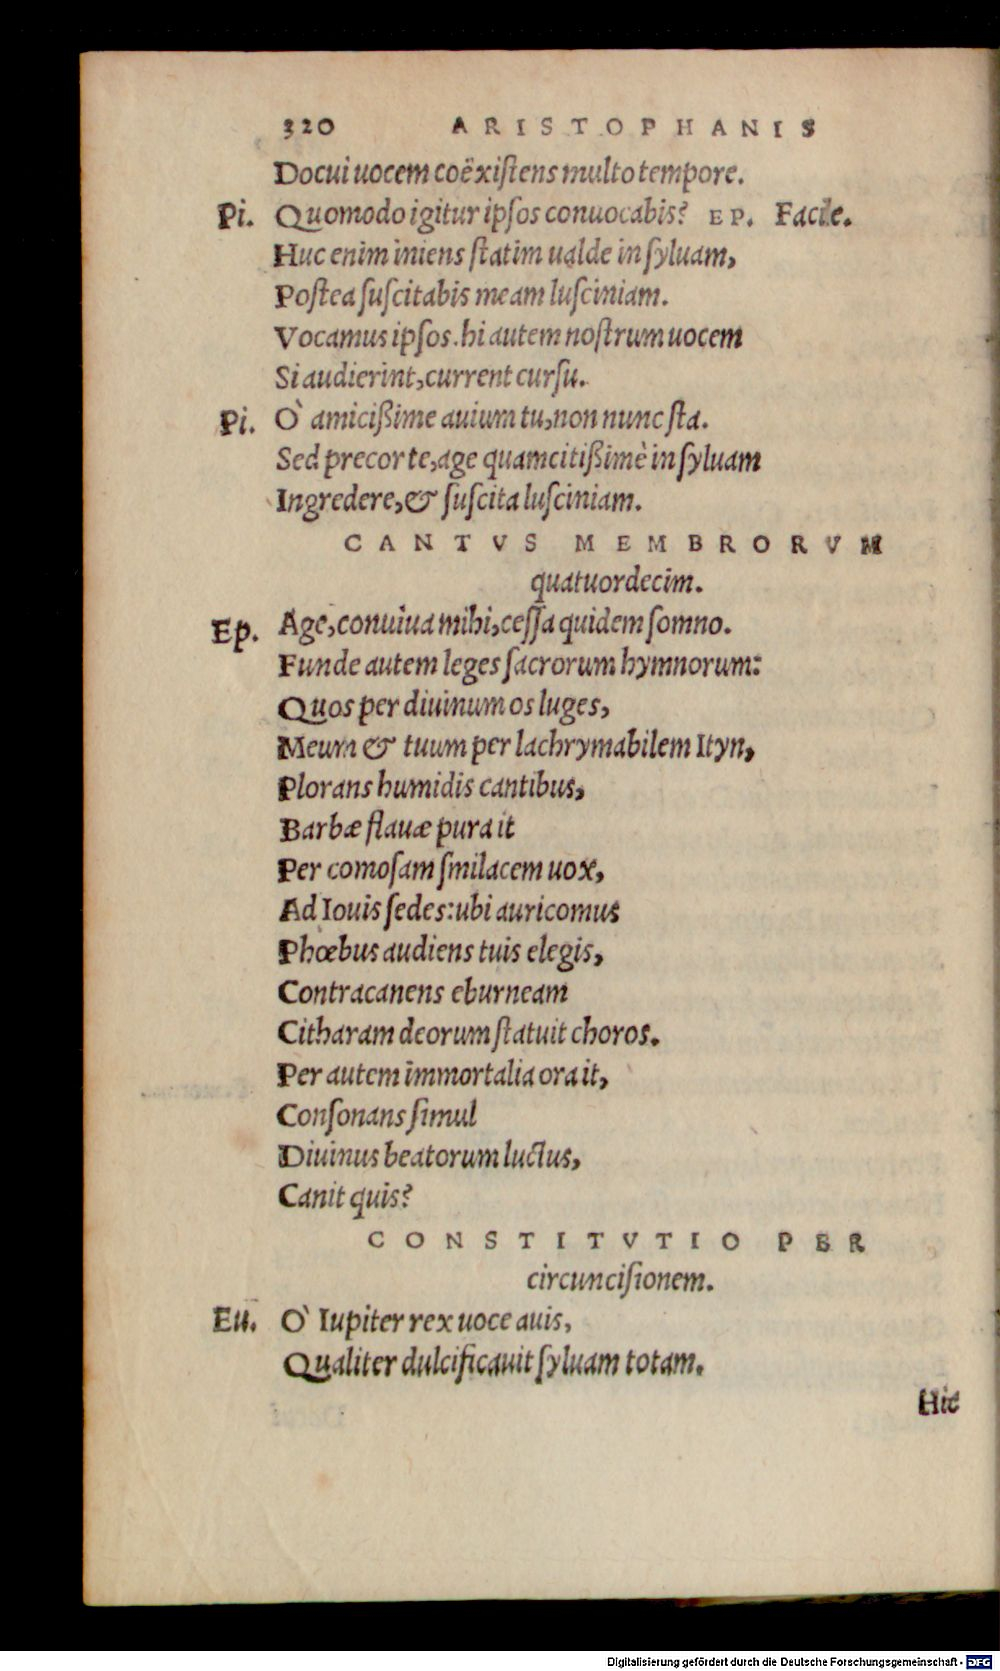 320 ARISTOPHANIS
Docui uocem coëxistens multo tempore.
Pi. Quomodo igitur ipsos conuocabis? EP. Facile.
Huc enim iniens statim ualde in syluam,
Postea suscitabis meam lusciniam.
Vocamus ipsos. hi autem nostrum uocem
Si audierint, current cursu.
Pi. Ò amicißime auium tu, non nunc sta.
Sed precor te, age quamcitißimè in syluam
Ingredere, & suscita lusciniam.
CANTVS MEMBRORVM
quatuordecim.
Ep. Age, conuiua mihi, cessa quidem somno.
Funde autem leges sacrorum hymnorum:
Quos per diuinum os luges,
Meum & tuum per lachrymabilem Ityn,
Plorans humidis cantibus,
Barbæ flauæ pura it
Per comosam smilacem uox,
Ad Iouis sedes: ubi auricomus
Phœbus audiens tuis elegis,
Contracanens eburneam
Citharam deorum statuit choros.
Per autem immortalia ora it,
Consonans simul
Diuinus beatorum luctus,
Canit quis?
CONSTITVTIO PER
circuncisionem.
Eu. Ò Iupiter rex uoce auis,
Qualiter dulcificauit syluam totam.
Hic
Digitalisierung gefördert durch die Deutsche Forschungsgemeinschaft - DFG